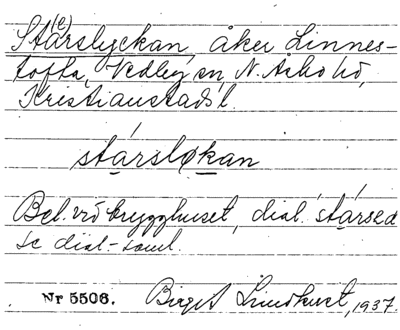 Stårslyckan, åker Linnes-
tofta, Vedby sn, N. Åsbo hd,
Kristianstads l.
stårsløkan
Bel. vid brygghuset, dial. stårsed
se dial-saml.
Nr 5506. Birgit Lindkvist, 1937.